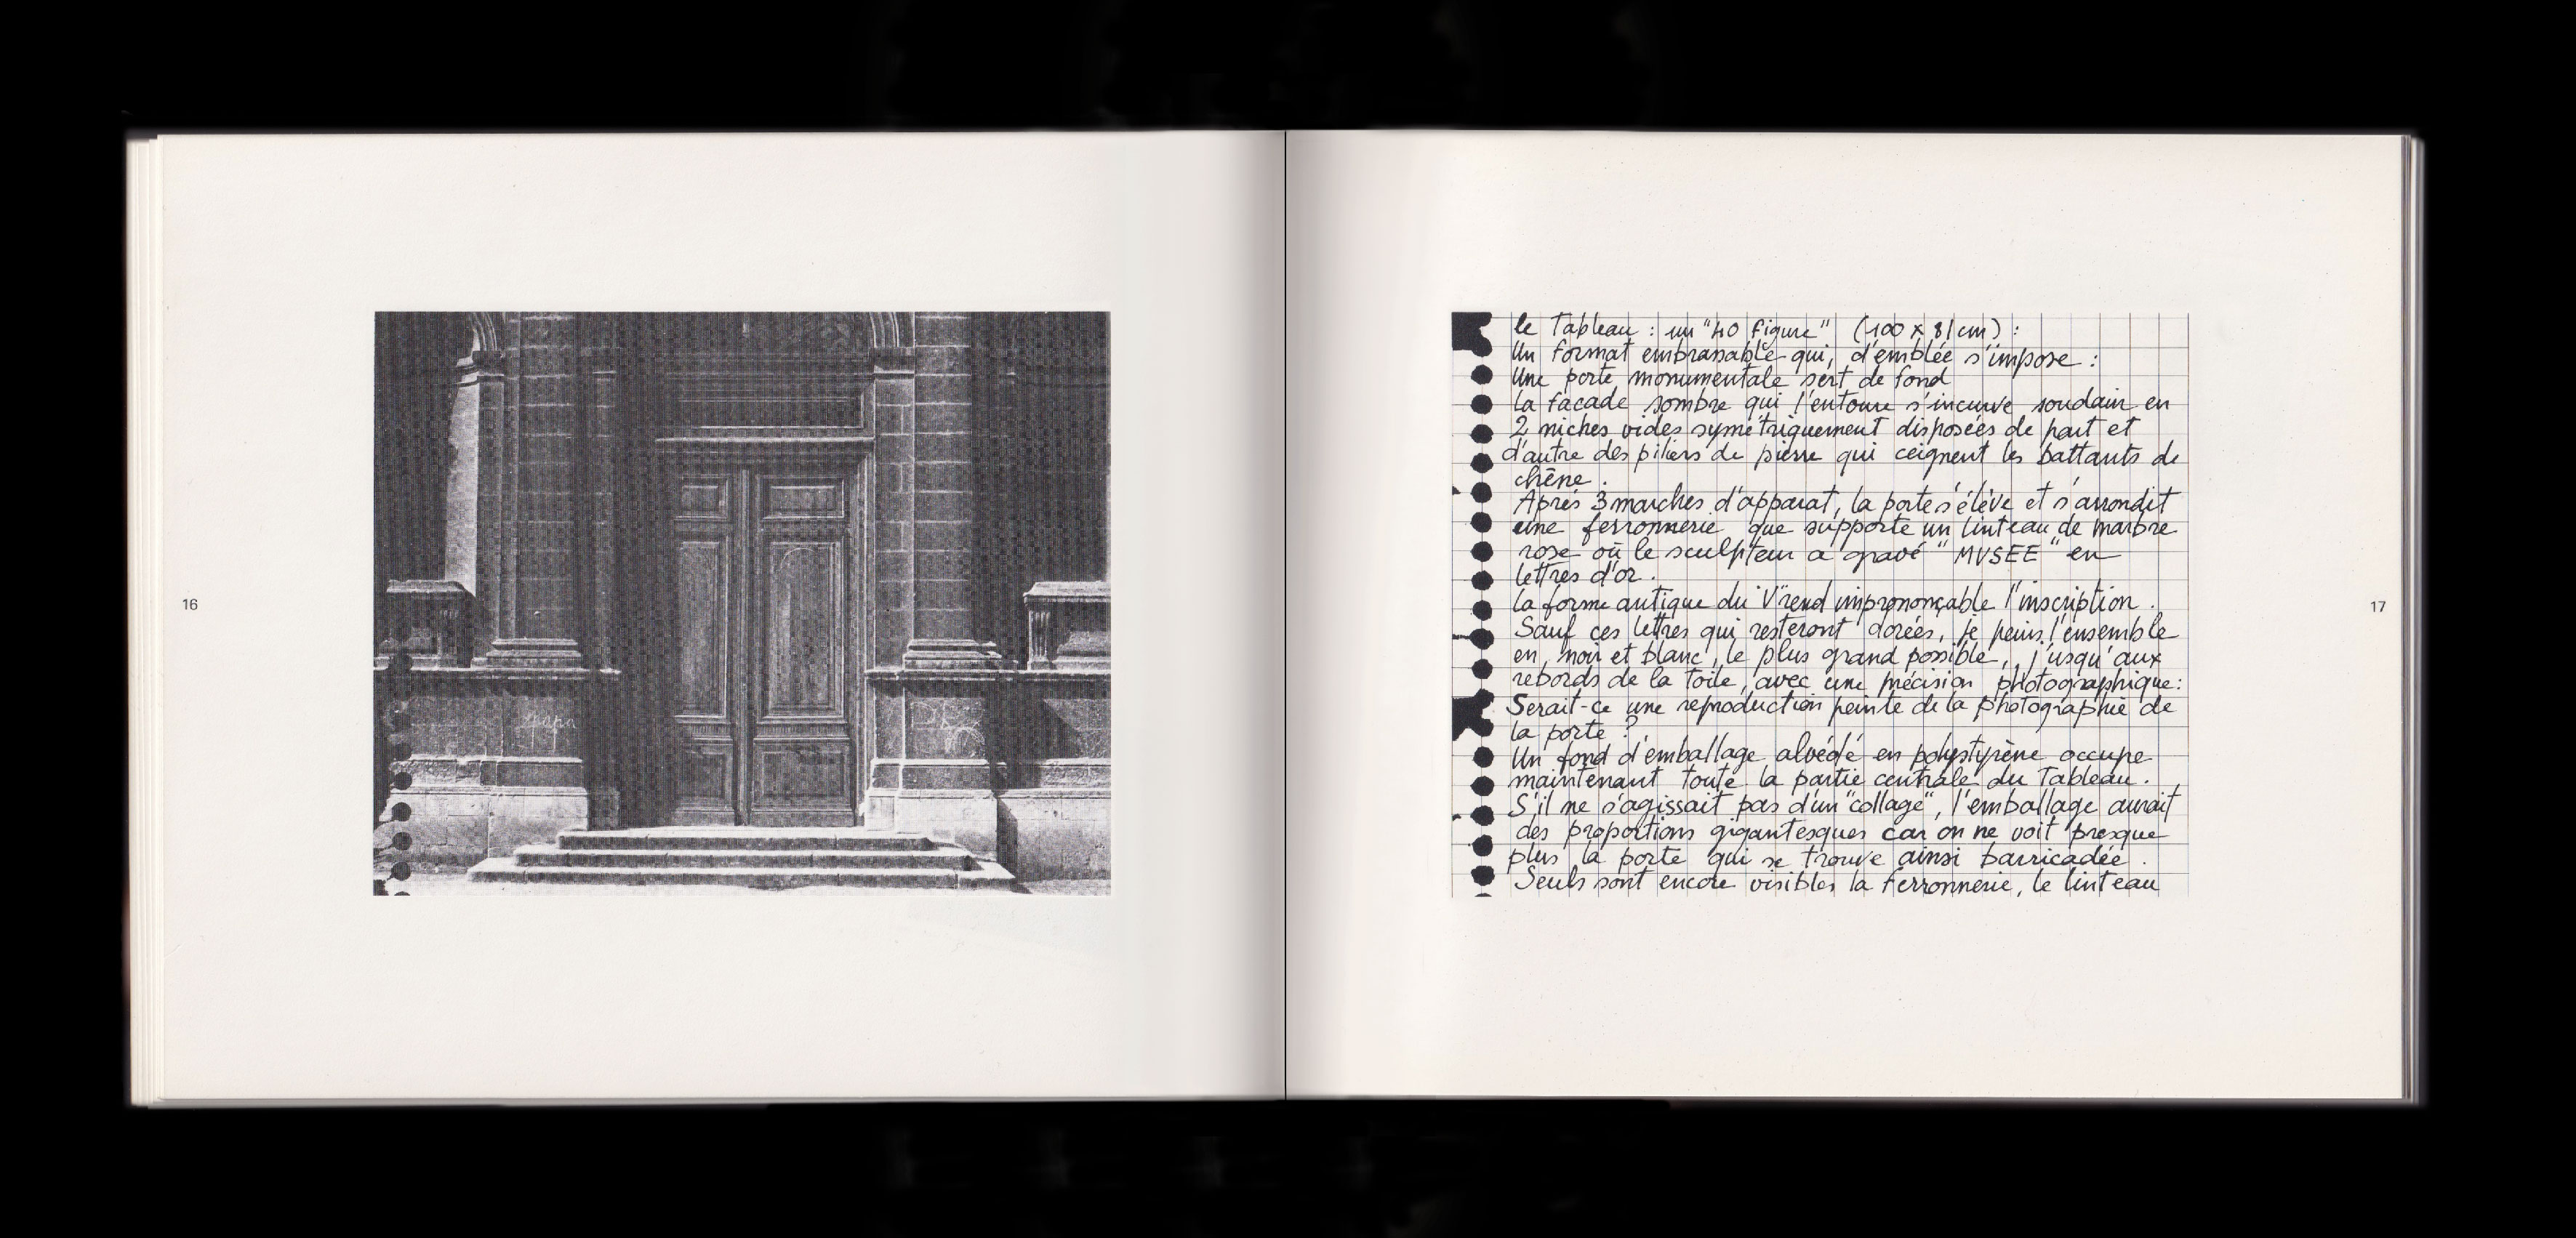 16
papa
le Tableau : un "40 figure" (100 x 81 cm) :
Un format embrassable qui, d'emblée s'impose :
Une porte monumentale sert de fond
la facade sombre qui l'entoure s'incurve soudain en
2 niches vides symétriquement disposées de part et
d'autre des piliers de pierre qui ceignent les battants de
chêne .
Après 3 marches d'apparat, la porte s'élève et s'arrondit
une ferronnerie que supporte un linteau de marbre
rose où le sculpteur a gravé "MVSEE" en
lettres d'or .
la forme antique du V rend imprononçable l'inscription .
Sauf ces lettres qui resteront dorées, je peins l'ensemble
en noir et blanc, le plus grand possible, jusqu'aux
rebords de la toile, avec une précision photographique :
Serait-ce une reproduction peinte de la photographie de
la porte ?
Un fond d'emballage alvéolé en polystyrène occupe
maintenant toute la partie centrale du Tableau .
S'il ne s'agissait pas d'un "collage", l'emballage aurait
des proportions gigantesques car on ne voit presque
plus la porte qui se trouve ainsi barricadée .
Seuls sont encore visibles la ferronnerie, le linteau
17